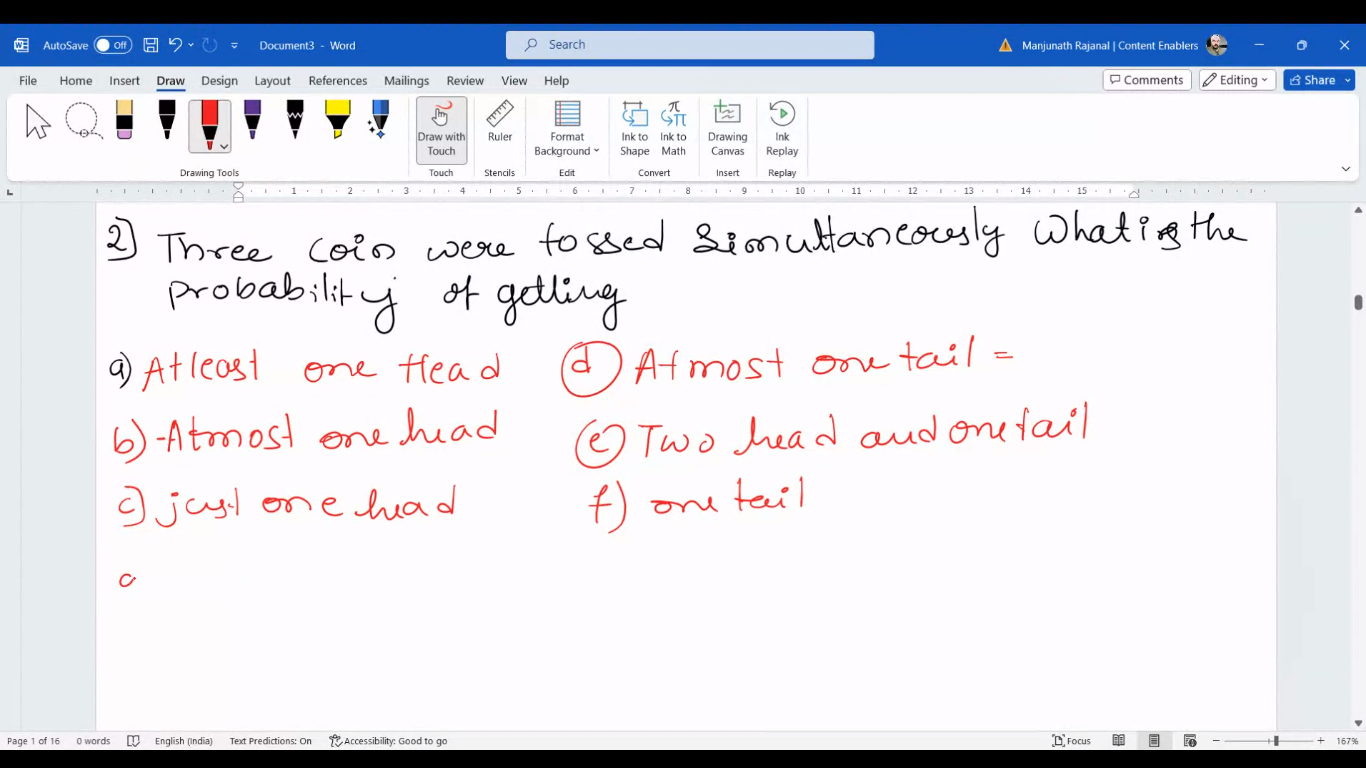 AutoSave Off Document3 - Word Search Manjunath Rajanal | Content Enablers
File Home Insert Draw Design Layout References Mailings Review View Help Comments Editing Share
Draw with Touch Ruler Format Background Ink to Shape Ink to Math Drawing Canvas Ink Replay
Drawing Tools Touch Stencils Edit Convert Insert Replay
1 2 3 4 5 6 7 8 9 10 11 12 13 14 15
2) Three coin were tossed Simultaneously What is the
probability of getting
a) Atleast one Head
b) Atmost one head
c) just one head
d) Atmost one tail =
e) Two head and one tail
f) one tail
a
Page 1 of 16 0 words English (India) Text Predictions: On Accessibility: Good to go Focus 167%